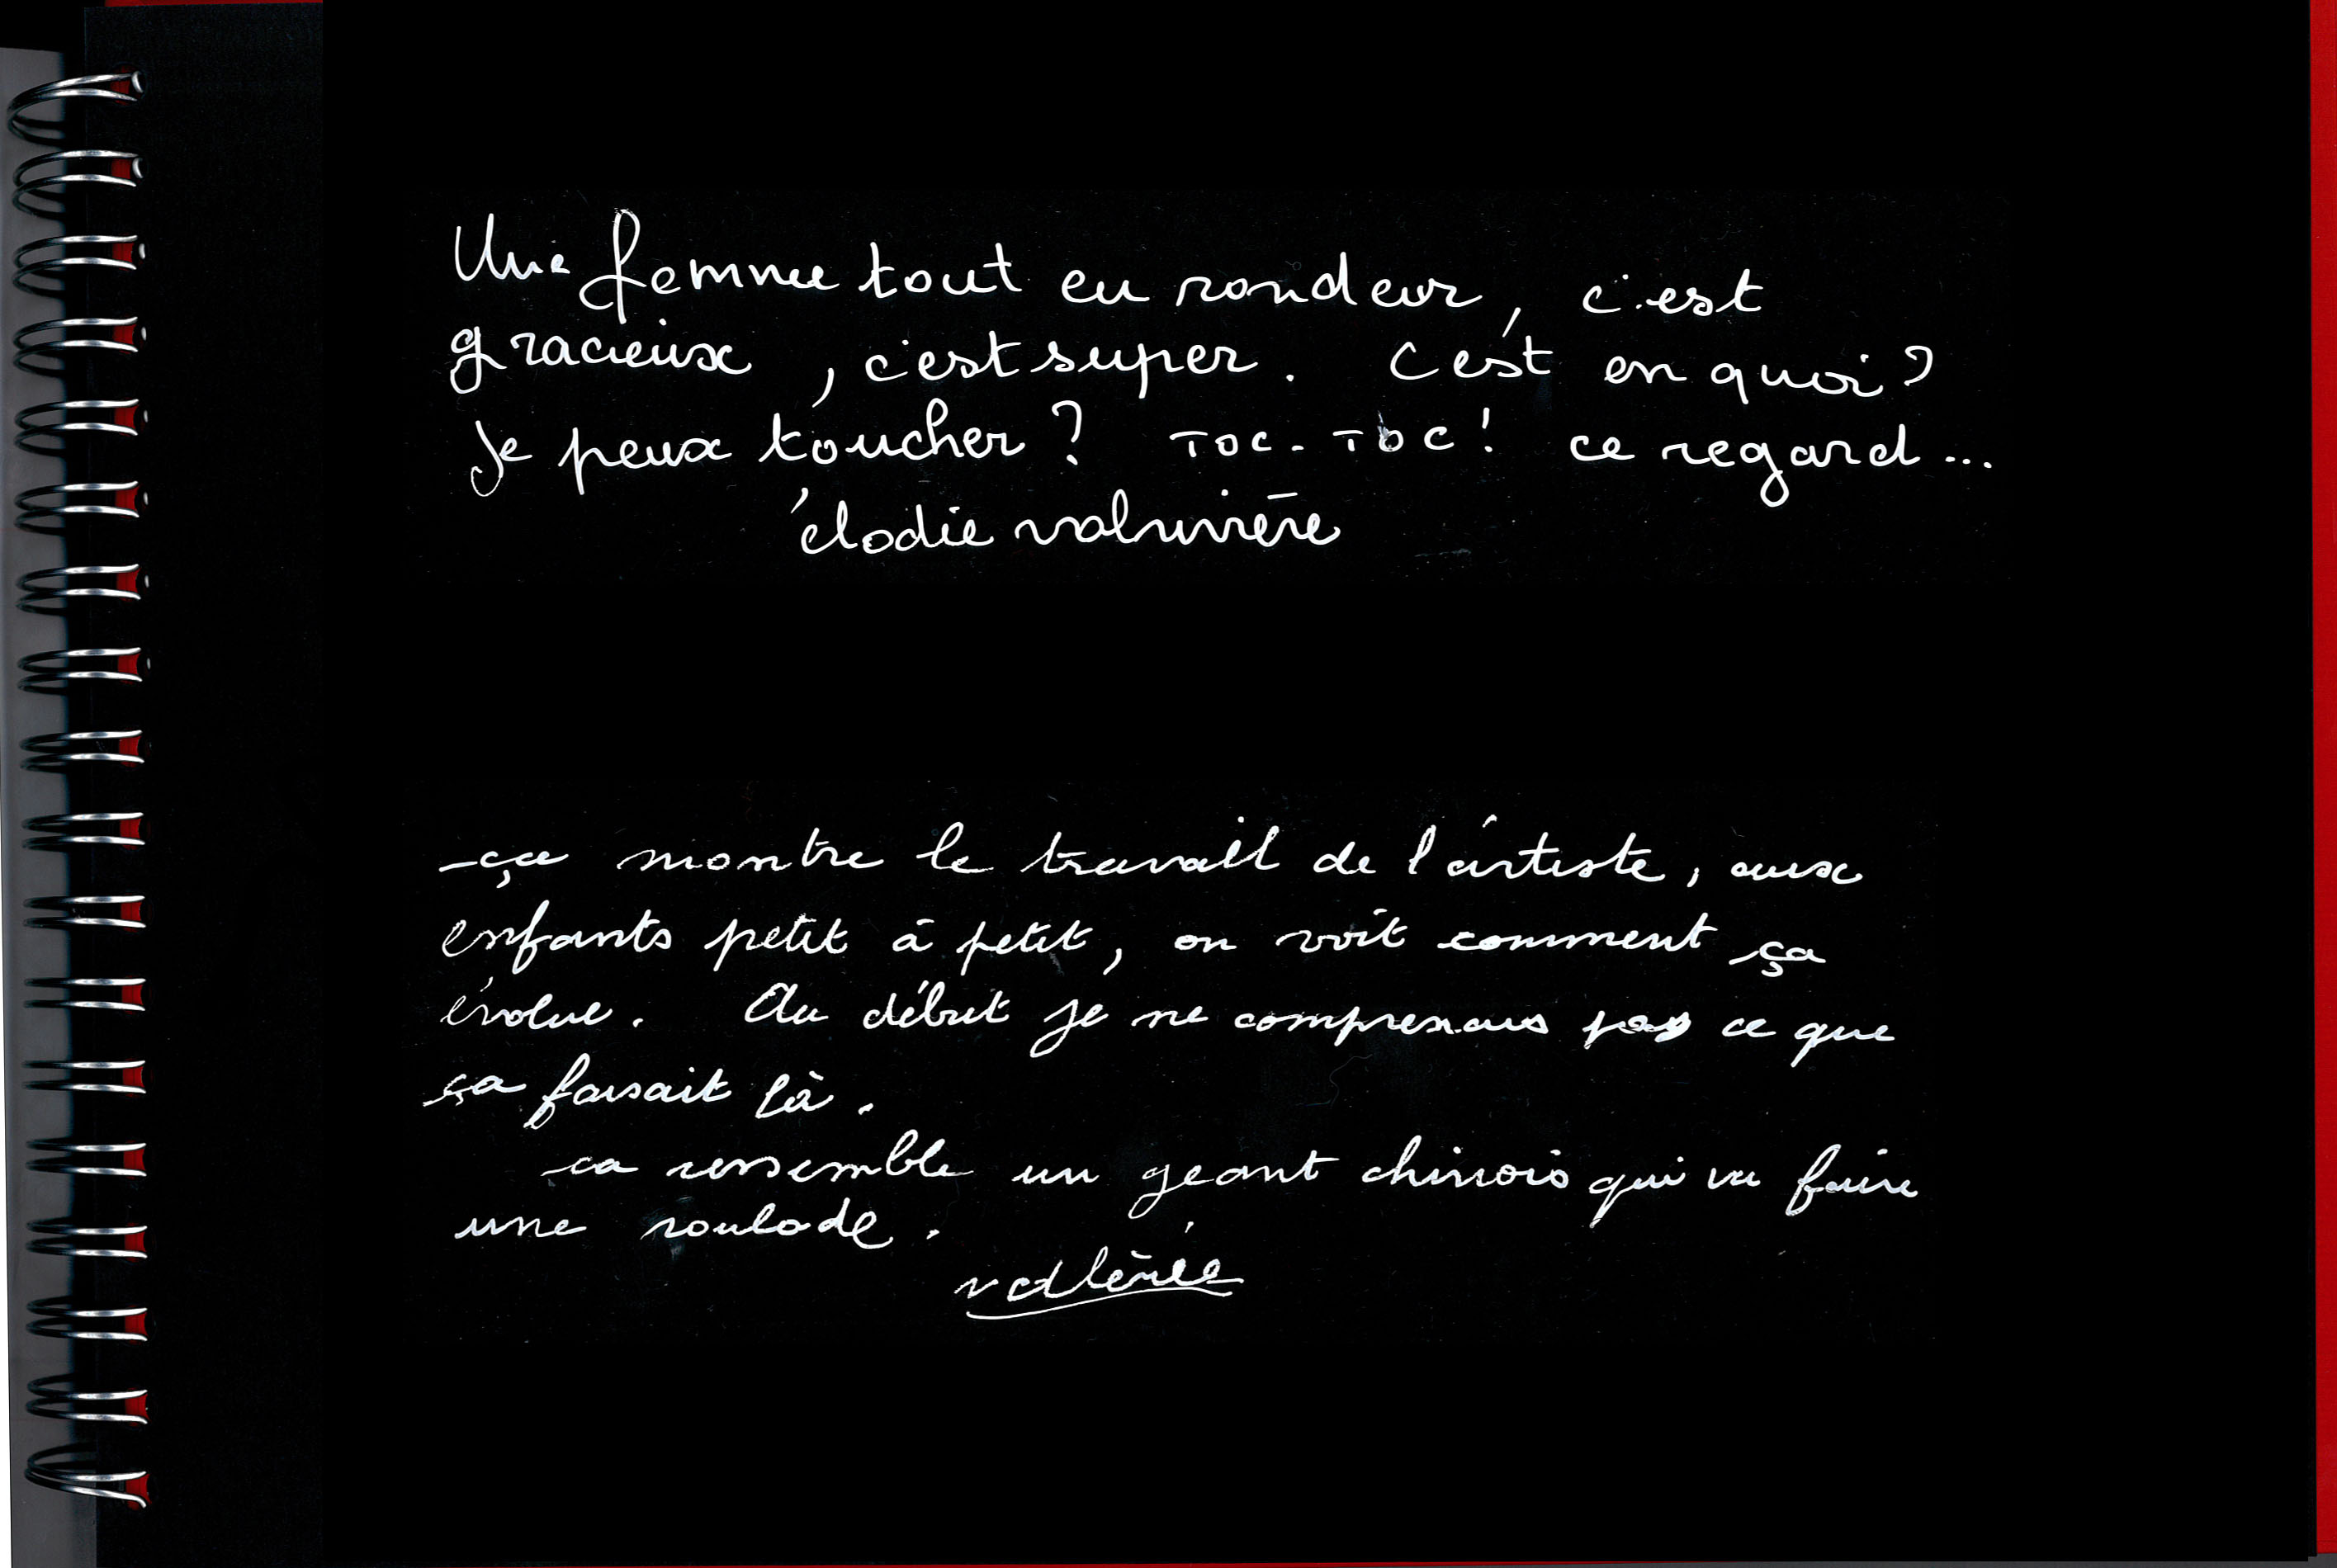 Une femme tout en rondeur, c'est
gracieux, c'est super. C'est en quoi?
Je peux toucher? TOC-TOC! ce regard...
élodie
-ça montre le travail de l'artiste, aux
enfants petit à petit, on voit comment ça
évolue. Au début je ne comprenais pas ce que
ça faisait là.
ca ressemble un géant chinois qui va faire
une roulade.